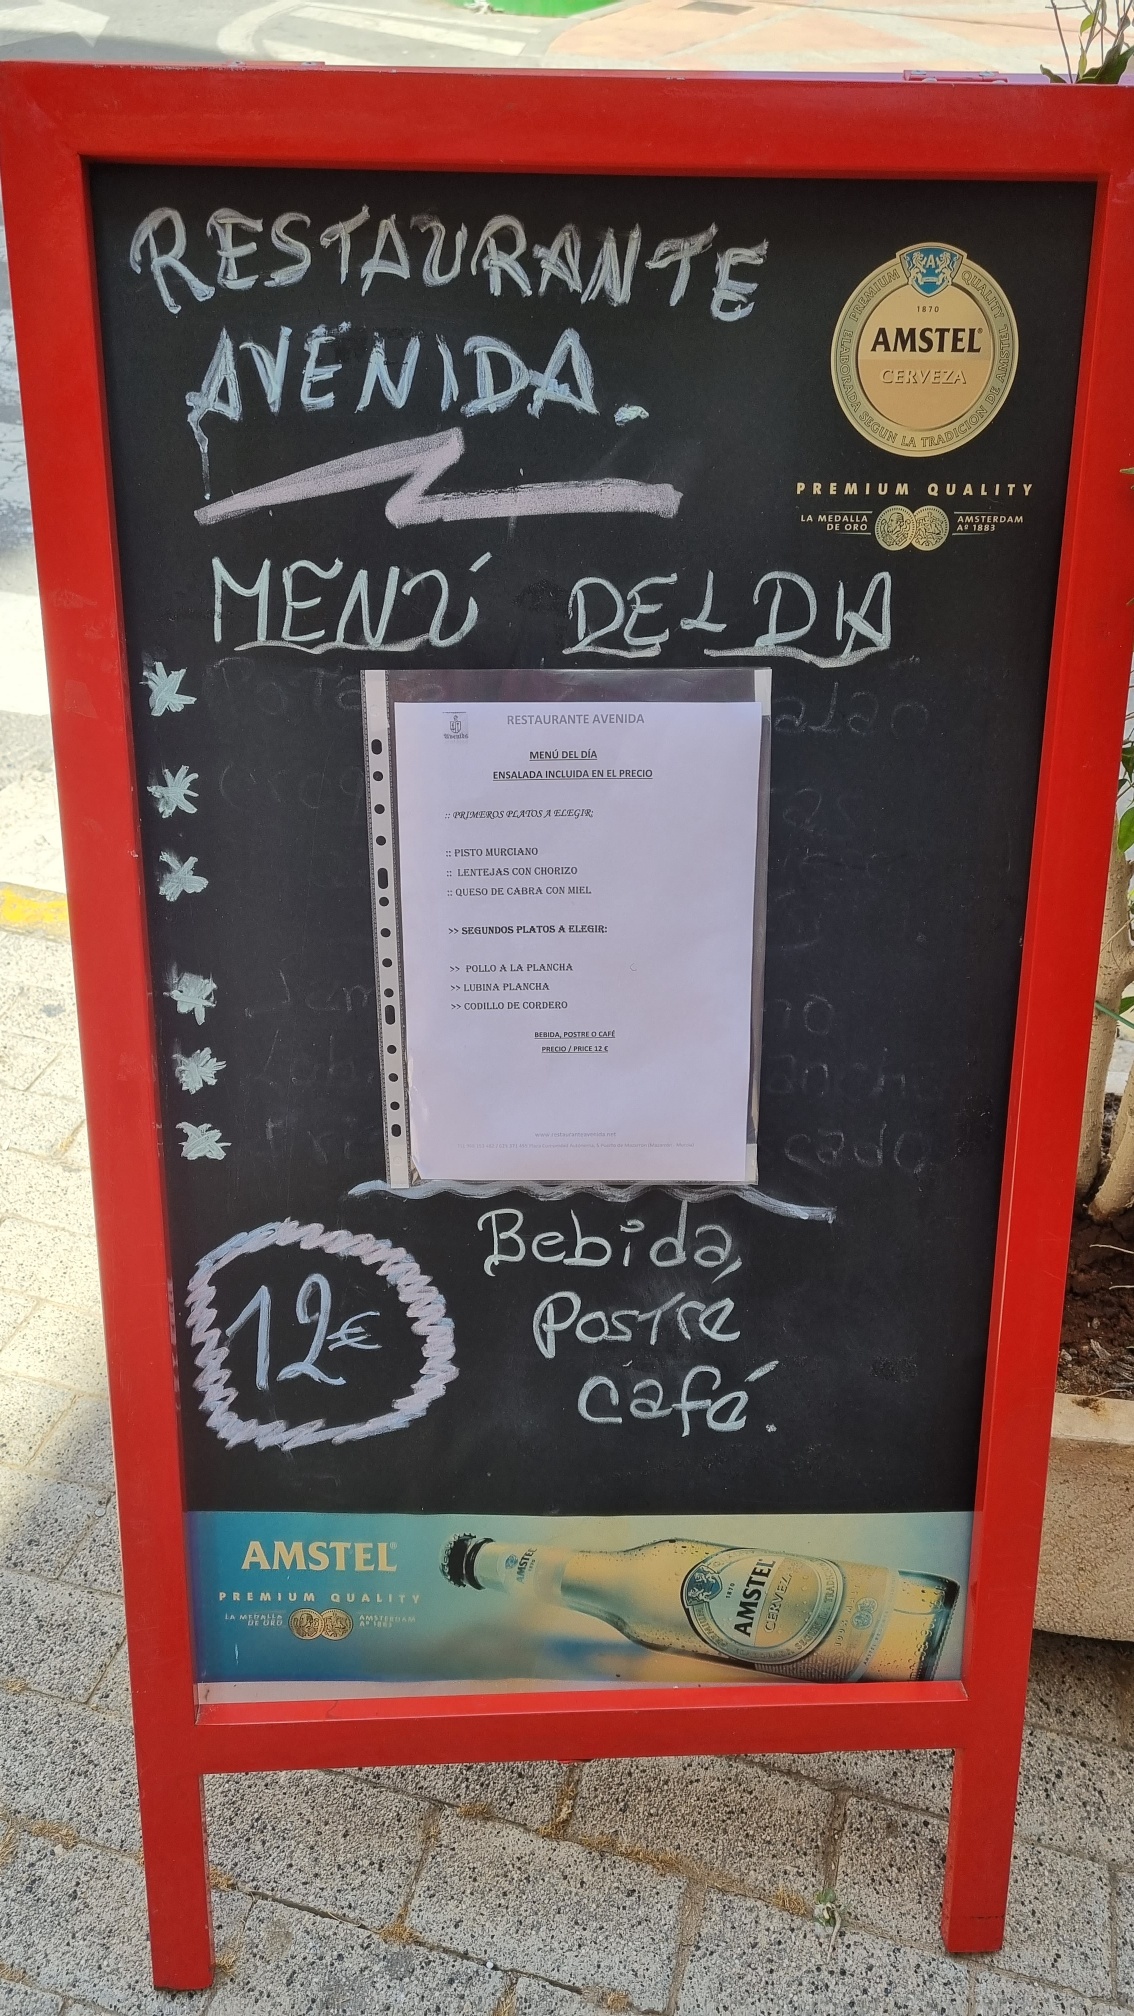 RESTAURANTE
AVENIDA.
PREMIUM QUALITY
ELABORADA SEGUN LA TRADICION DE AMSTEL
1870
AMSTEL®
CERVEZA
PREMIUM QUALITY
LA MEDALLA
DE ORO
AMSTERDAM
Aº 1883
MENÚ DEL DIA
RESTAURANTE AVENIDA
MENÚ DEL DÍA
ENSALADA INCLUIDA EN EL PRECIO
:: PRIMEROS PLATOS A ELEGIR:
:: PISTO MURCIANO
:: LENTEJAS CON CHORIZO
:: QUESO DE CABRA CON MIEL
>> SEGUNDOS PLATOS A ELEGIR:
>> POLLO A LA PLANCHA
>> LUBINA PLANCHA
>> CODILLO DE CORDERO
BEBIDA, POSTRE O CAFÉ
PRECIO / PRICE 12 €
www.restauranteavenida.net
12€
Bebida,
Postre
café.
AMSTEL®
PREMIUM QUALITY
LA MEDALLA
DE ORO
AMSTERDAM
Aº 1883
AMSTEL
1870
AMSTEL
CERVEZA